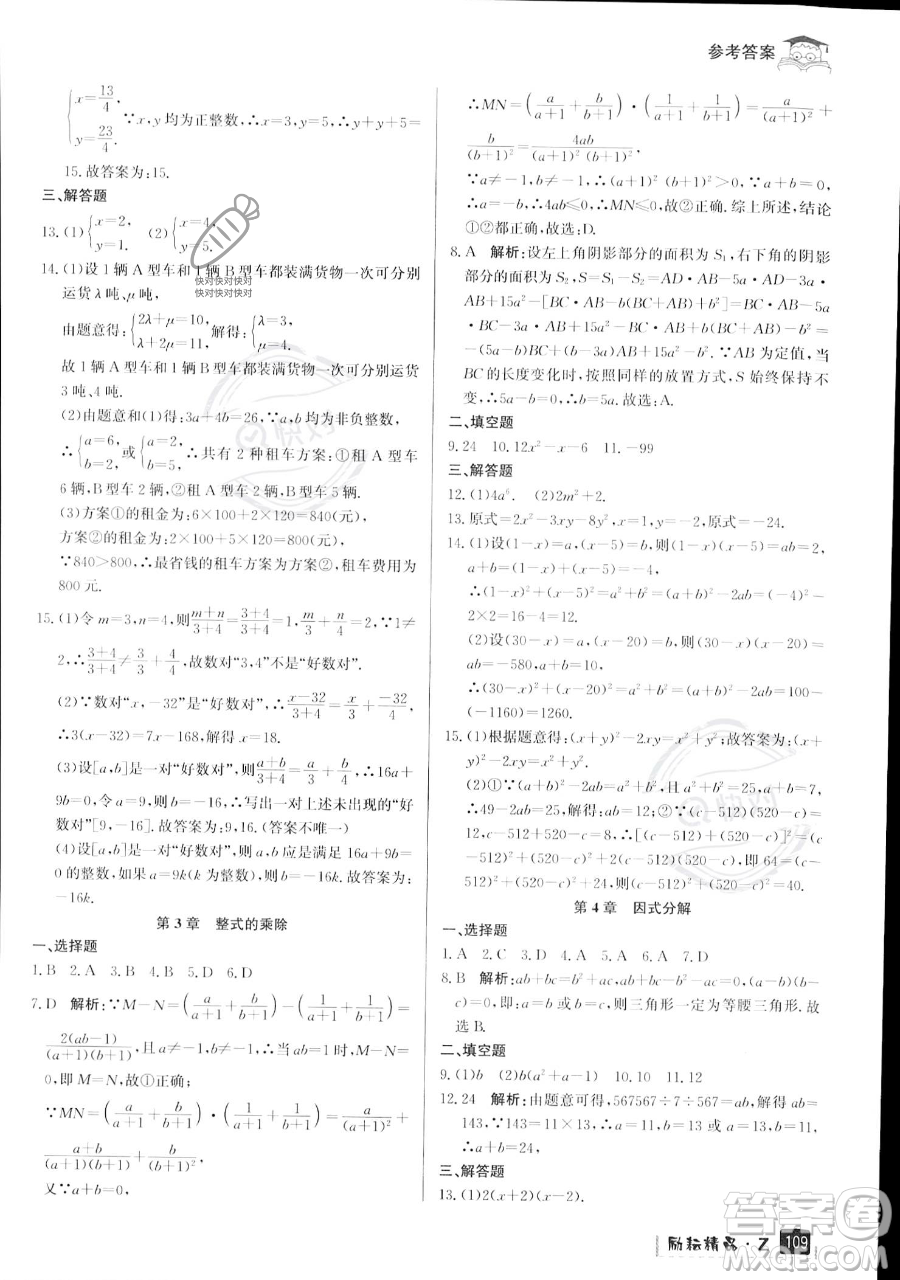 参考答案
{x=13/4,
y=23/4. ∵x,y均为正整数,∴x=3,y=5,∴y+y+5=
15.故答案为:15.
三、解答题
13.(1){x=2, y=1. (2){x=4, y=5.
14.(1)设1辆A型车和1辆B型车都装满货物一次可分别
运货λ吨、μ吨,
由题意得:{2λ+μ=10, λ+2μ=11, 解得:{λ=3, μ=4.
故1辆A型车和1辆B型车都装满货物一次可分别运货
3吨、4吨.
(2)由题意和(1)得:3a+4b=26,∵a,b均为非负整数,
∴{a=6, b=2 或{a=2, b=5, ∴共有2种租车方案:①租A型车
6辆,B型车2辆,②租A型车2辆,B型车5辆.
(3)方案①的租金为:6×100+2×120=840(元),
方案②的租金为:2×100+5×120=800(元),
∵840>800,∴最省钱的租车方案为方案②,租车费用为
800元.
15.(1)令m=3,n=4,则(m+n)/(3+4)=(3+4)/(3+4)=1,m/3+n/4=3/3+4/4=2.∵1≠
2,∴(3+4)/(3+4)≠3/3+4/4,故数对“3,4”不是“好数对”.
(2)∵数对“x,-32”是“好数对”,∴(x-32)/(3+4)=x/3+(-32)/4,
∴3(x-32)=7x-168,解得x=18.
(3)设[a,b]是一对“好数对”,∵a,b是“好数对”,∴16a+
9b=0,可设a=9,b=-16,∴写出一对上述未出现的“好
数对”[9,-16].故答案为:9,16.(答案不唯一)
(4)设[a,b]是一对“好数对”,则a,b应是满足16a+9b=
0的整数,如果a=9k(k为整数),则b=-16k.故答案为:
-16k.
第3章 整式的乘除
一、选择题
1.B 2.A 3.B 4.D 5.A 6.A
7.D 解析:∵M-N=(a/(a+1)+b/(b+1))-(1/(a+1)+1/(b+1))=
2(ab-1)/((a+1)(b+1)),且a≠-1,b≠-1,∴当ab=1时,M-N=
0,即M=N,故①正确;
∵MN=(a/(a+1)+b/(b+1))·(1/(a+1)+1/(b+1))=a/(a+1)²+
(a+b)/((a+1)(b+1))+b/(b+1)²,
又∵a+b=0,
∴MN=(a/(a+1)+b/(b+1))·(1/(a+1)+1/(b+1))=a/(a+1)²+
b/(b+1)²=4ab/((a+1)²(b+1)²).
∵a≠-1,b≠-1,∴(a+1)²(b+1)²>0.
∵a+b=0,∴4ab≤0,∴MN≤0,故②正确.综上所述,结论
①②都正确,故选:D.
8.A 解析:设左上角阴影部分的面积为S₁,右下角的阴影
部分的面积为S₂,S=S₁-S₂=AD·AB-5a·AD-3a·
AB+15a²-[BC·AB-b(BC+AB)+b²]=BC·AB-5a
·BC-3a·AB+15a²-BC·AB+b(BC+AB)-b²=
-(5a-b)BC+(b-3a)AB+15a²-b².∵AB为定值,当
BC的长度变化时,按照同样的放置方式,S始终保持不
变,∴5a-b=0,∴b=5a.故选:A.
二、填空题
9.24 10.12x²-x-6 11.-99
三、解答题
12.(1)4a⁶. (2)2m²+2.
13.原式=2x²-3xy-8y²,原式=-24.
14.(1)设(1-x)=a,(x-5)=b,则(1-x)(x-5)=ab=2,
a+b=(1-x)+(x-5)=-4,
∴(1-x)²+(x-5)²=a²+b²=(a+b)²-2ab=(-4)²-
2×2=16-4=12.
(2)设(30-x)=a,(x-20)=b,则(30-x)(x-20)=
ab=-580,a+b=(30-x)+(x-20)=10,
∴(30-x)²+(x-20)²=a²+b²=(a+b)²-2ab=100-
(-1160)=1260.
15.(1)根据题意得:(x+y)²-2xy=x²+y²;故答案为:(x+
y)²-2xy=x²+y².
(2)①∵(a+b)²-2ab=a²+b²,a²+b²=25,a+b=7,
∴49-2ab=25,∴ab=12;②∵(c-512)²+(520-c)²=
48,c-512+520-c=8;∴[(c-512)+(520-c)]²=(c
-512)²+2(c-512)(520-c)+(520-c)²,即64=(c-
512)²+(520-c)²+16,∴(c-512)(520-c)=8.
第4章 因式分解
一、选择题
1.A 2.C 3.D 4.C 5.A 6.A 7.D
8.B 解析:ab+bc=b²+ac,∴ab-ac=b²-bc,即a(b-c)
=b(b-c),∴(a-b)(b-c)=0,∴a-b=0或b-c=
0,即:a=b或b=c,则三角形一定为等腰三角形.故
选B.
二、填空题
9.(1)b (2)b(a²+a-1) 10.10 11.12
12.24 解析:由题意可得,567567÷7÷567=ab,解得ab=
143,∵143=11×13,∴a=11,b=13或a=13,b=11,∴
a+b=24.
三、解答题
13.(1)2(x+2)(x-2).
快对快对快对
快对快对快对
快对
答案圈
励耘精品·Z 109